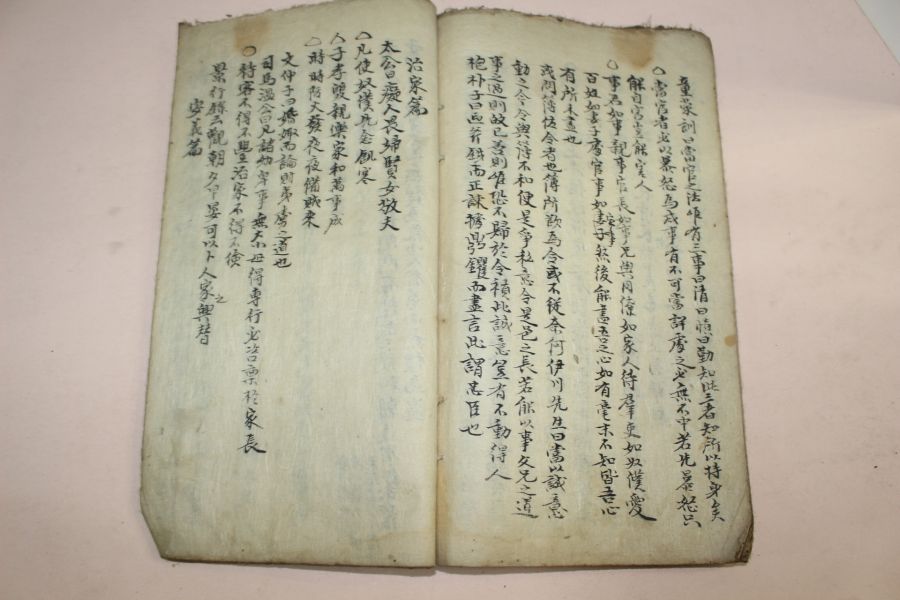 童蒙訓曰當官之法唯有三事曰清曰慎曰勤知此三者知所以持身矣
○當官者必以暴怒為戒事有不可當詳處之必無不中若先暴怒只
能自害豈能害人
○事君如事親事官長如事兄與同僚如家人待群吏如奴僕愛
百姓如妻子處官事如家事然後能盡吾之心如有毫末不知皆吾心
有所未盡也
或問簿佐令者也簿所欲為令或不從奈何伊川先生曰當以誠意
動之今令與簿不和便是爭私意令是邑之長若能以事父兄之道
事之過則歸己善則唯恐不歸於令積此誠意豈有不動得人
抱朴子曰迎斧鉞而正諫據鼎鑊而盡言此謂忠臣也
治家篇
太公曰癡人畏婦賢女敬夫
○凡使奴僕先念飢寒
人子孝雙親樂家和萬事成
○時時防火發夜夜備賊來
文仲子曰婚娶而論財夷虜之道也
司馬溫公曰凡諸幼卑事無大小毋得專行必咨稟於家長
○待客不得不豊治家不得不儉
景行錄云觀朝夕早晏可以卜人家之興替
安義篇